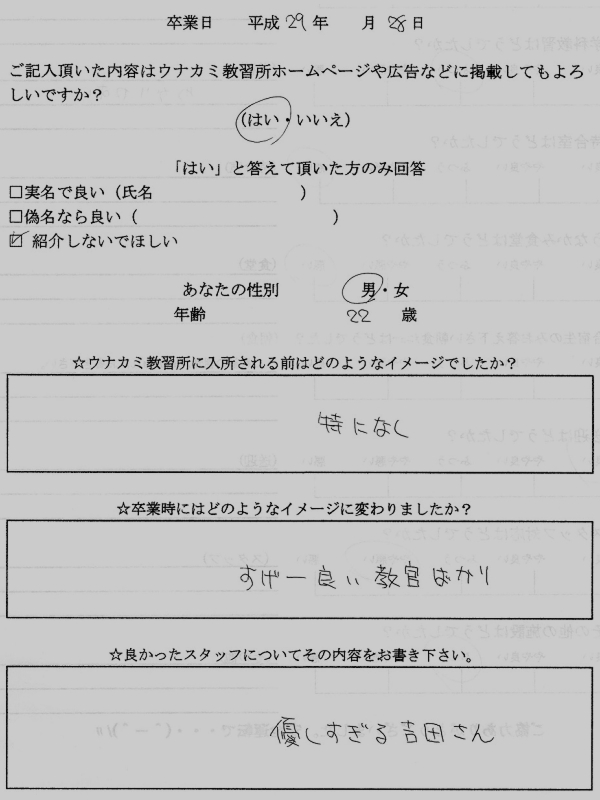 卒業日 平成 29 年 月 28 日
ご記入頂いた内容はウナカミ教習所ホームページや広告などに掲載してもよろ
しいですか？
(はい・いいえ)
「はい」と答えて頂いた方のみ回答
□実名で良い（氏名 ）
□偽名なら良い（ ）
☑ 紹介しないでほしい
あなたの性別 男・女
年齢 22 歳
☆ウナカミ教習所に入所される前はどのようなイメージでしたか？
特になし
☆卒業時にはどのようなイメージに変わりましたか？
すげー良い教官ばかり
☆良かったスタッフについてその内容をお書き下さい。
優しすぎる吉田さん